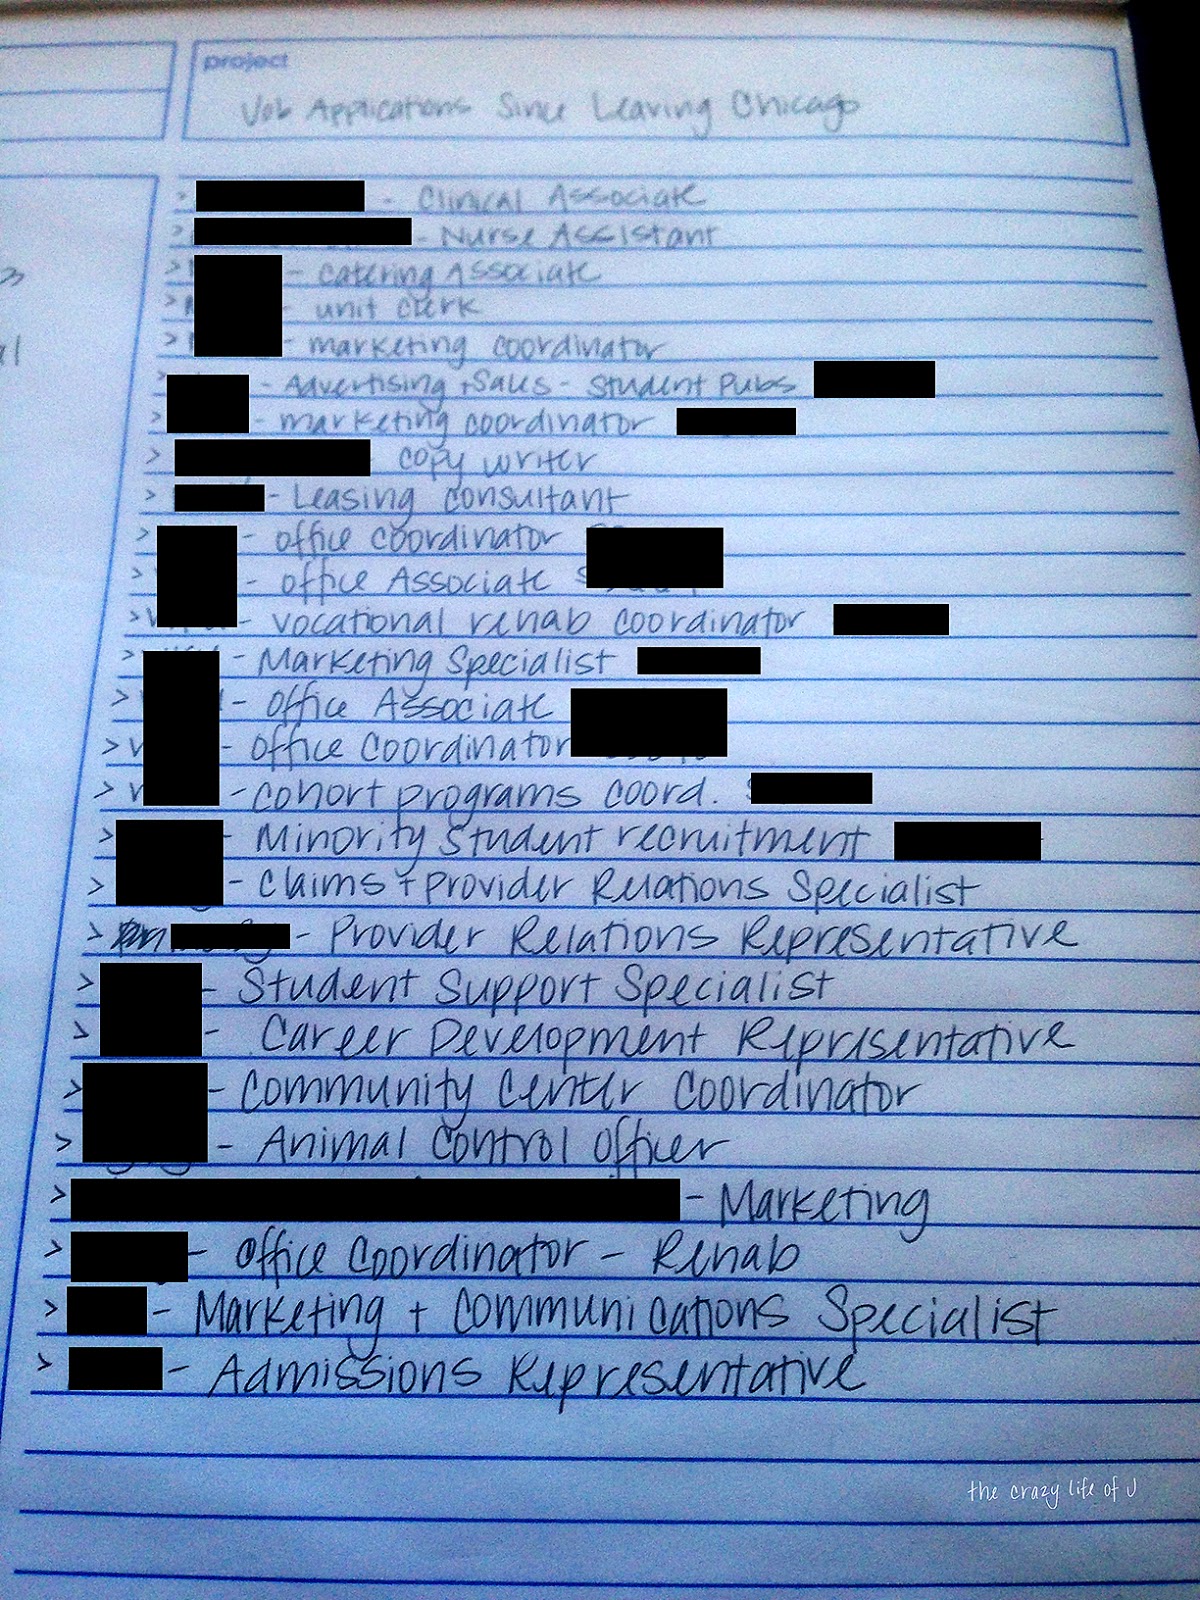 project
Job Applications Since Leaving Chicago
> - Clinical Associate
> - Nurse Assistant
> - catering Associate
> - unit clerk
> - marketing coordinator
- Advertising + Sales - Student Pubs
- marketing coordinator
> copy writer
> - Leasing consultant
> - office coordinator
> - office Associate
> - vocational rehab coordinator
> - Marketing Specialist
> - Office Associate
> - Office Coordinator
> - cohort programs coord.
> - Minority Student recruitment
> - Claims + Provider Relations Specialist
> - Provider Relations Representative
> - Student Support Specialist
> - Career Development Representative
> - Community Center Coordinator
> - Animal Control Officer
> - Marketing
> - Office Coordinator - Rehab
> - Marketing + Communications Specialist
> - Admissions Representative
the crazy life of J